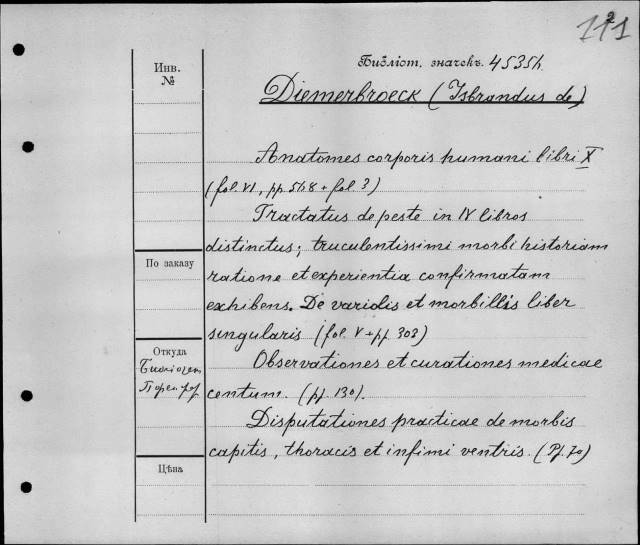 Инв.
№
Библіот. значекъ. 4535h.
Diemerbroeck (Isbrandus de)
Anatomes corporis humani libri X
(fol. VI, pp. 548 + fol. ?)
Tractatus de peste in IV libros
distinctus; truculentissimi morbi historiam
ratione et experientia confirmatam
exhibens. De variolis et morbillis liber
singularis (fol. V + pp. 303)
Observationes et curationes medicae
centum. (pp. 130).
Disputationes practicae de morbis
capitis, thoracis et infimi ventris. (Pp. 70)
По заказу
Откуда
Цѣна